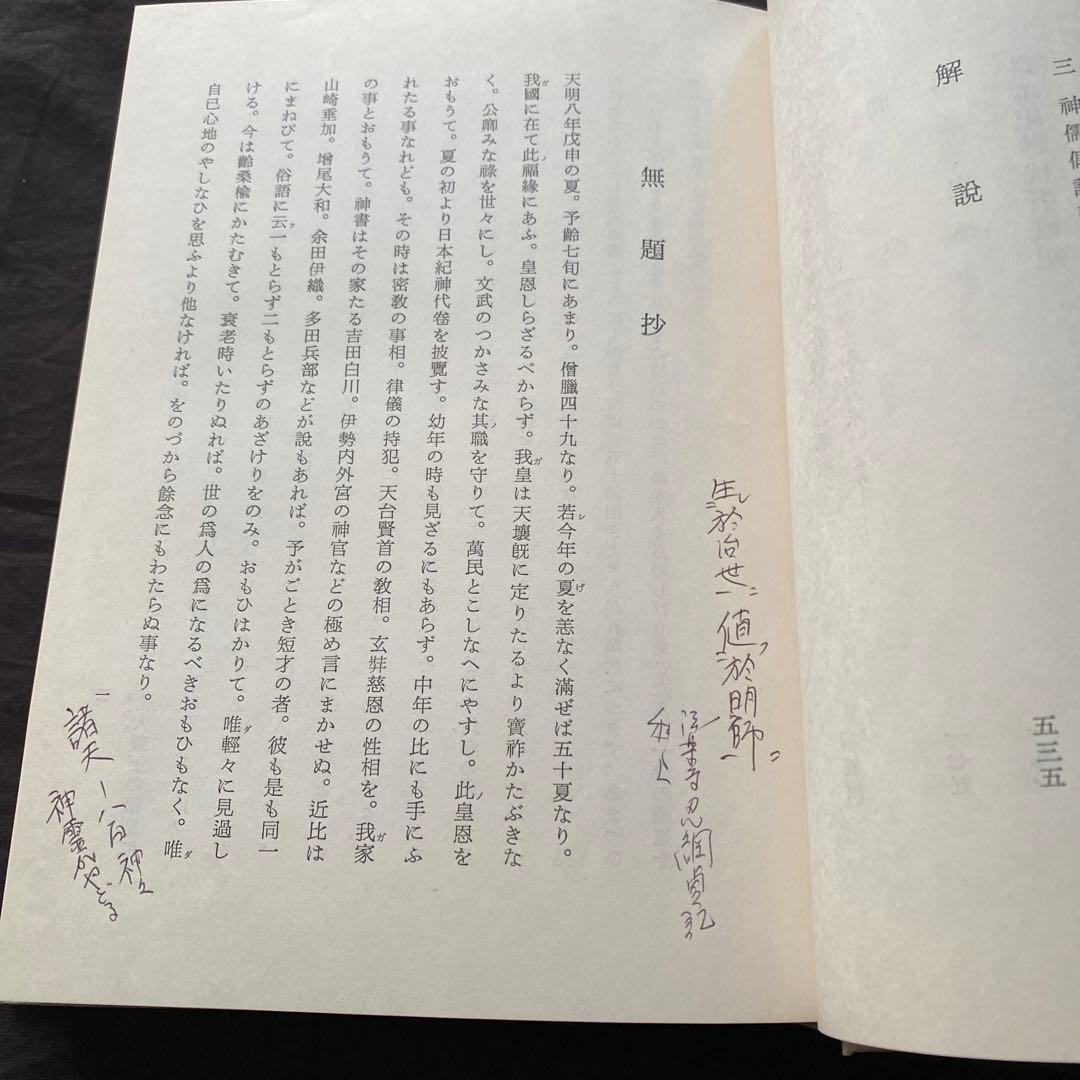 三 神儒
解説
五三五
無題抄
天明八年戊申の夏。予齡七旬にあまり。僧臘四十九なり。若シ今年の夏げを恙なく滿ぜば五十夏なり。
我ガ國に在て此福緣にあふ。皇恩しらざるべからず。我ガ皇は天壤旣に定りたるより寶祚かたぶきな
く。公卿みな祿を世々にし。文武のつかさみな其ノ職を守りて。萬民とこしなへにやすし。此ノ皇恩を
おもうて。夏の初より日本紀神代卷を披覽す。幼年の時も見ざるにもあらず。中年の比にも手にふ
れたる事なれども。その時は密敎の事相。律儀の持犯。天台賢首の敎相。玄弉慈恩の性相を。我ガ家
の事とおもうて。神書はその家たる吉田白川。伊勢内外宮の神官などの極め言にまかせぬ。近比は
山崎垂加。增尾大和。余田伊織。多田兵部などが說もあれば。予がごとき短才の者。彼も是も同一
にまねびて。俗語に云フ一もとらず二もとらずのあざけりをのみ。おもひはかりて。唯ダ輕々に見過し
ける。今は齡桑楡にかたむきて。衰老時いたりぬれば。世の爲人の爲になるべきおもひもなく。唯ダ
自己心地のやしなひを思ふより他なければ。をのづから餘念にもわたらぬ事なり。
生於治世 値於明師
忍綱貞紀
諸天 神
神靈がやどる